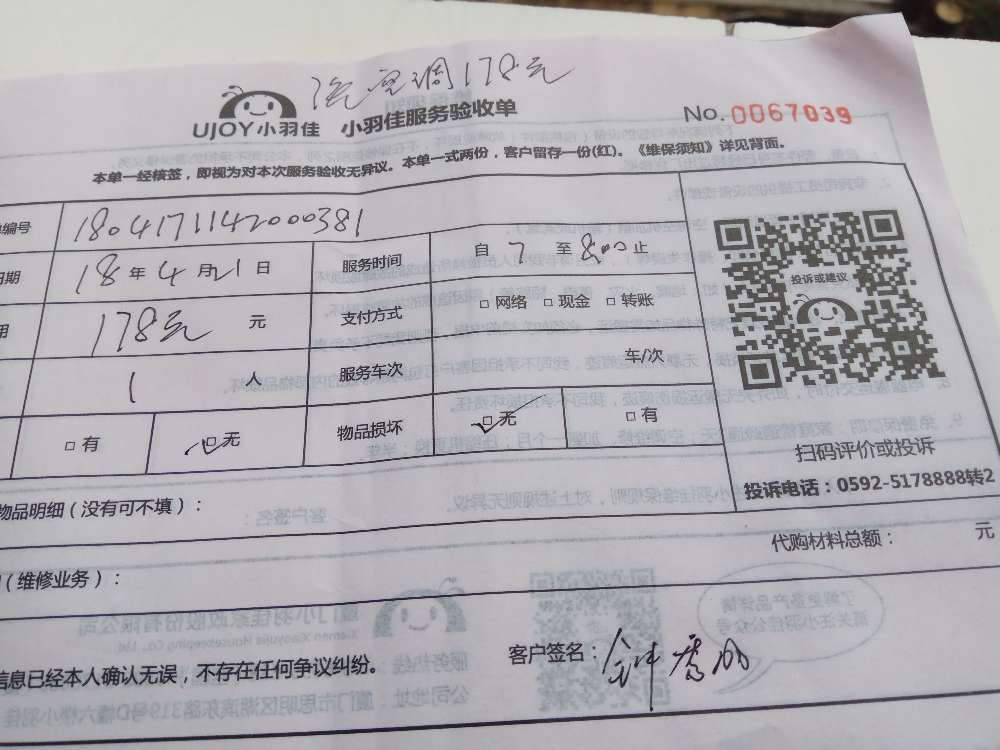 洗空调178元
UJOY小羽佳 小羽佳服务验收单 No.0067039
本单一经核签，即视为对本次服务验收无异议。本单一式两份，客户留存一份(红)。《维保须知》详见背面。
编号 1804171142000381
期 18年4月21日 服务时间 自7至8:00止
178元 元 支付方式 □网络 □现金 □转账
1 人 服务车次 车/次
□有 □无 物品损坏 □无 □有
投诉或建议
扫码评价或投诉
投诉电话：0592-5178888转2
物品明细（没有可不填）：
代购材料总额： 元
（维修业务）：
信息已经本人确认无误，不存在任何争议纠纷。
客户签名：